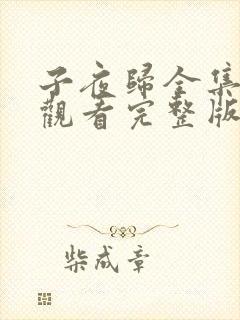 子夜歸全集
觀看完整版
柴成章